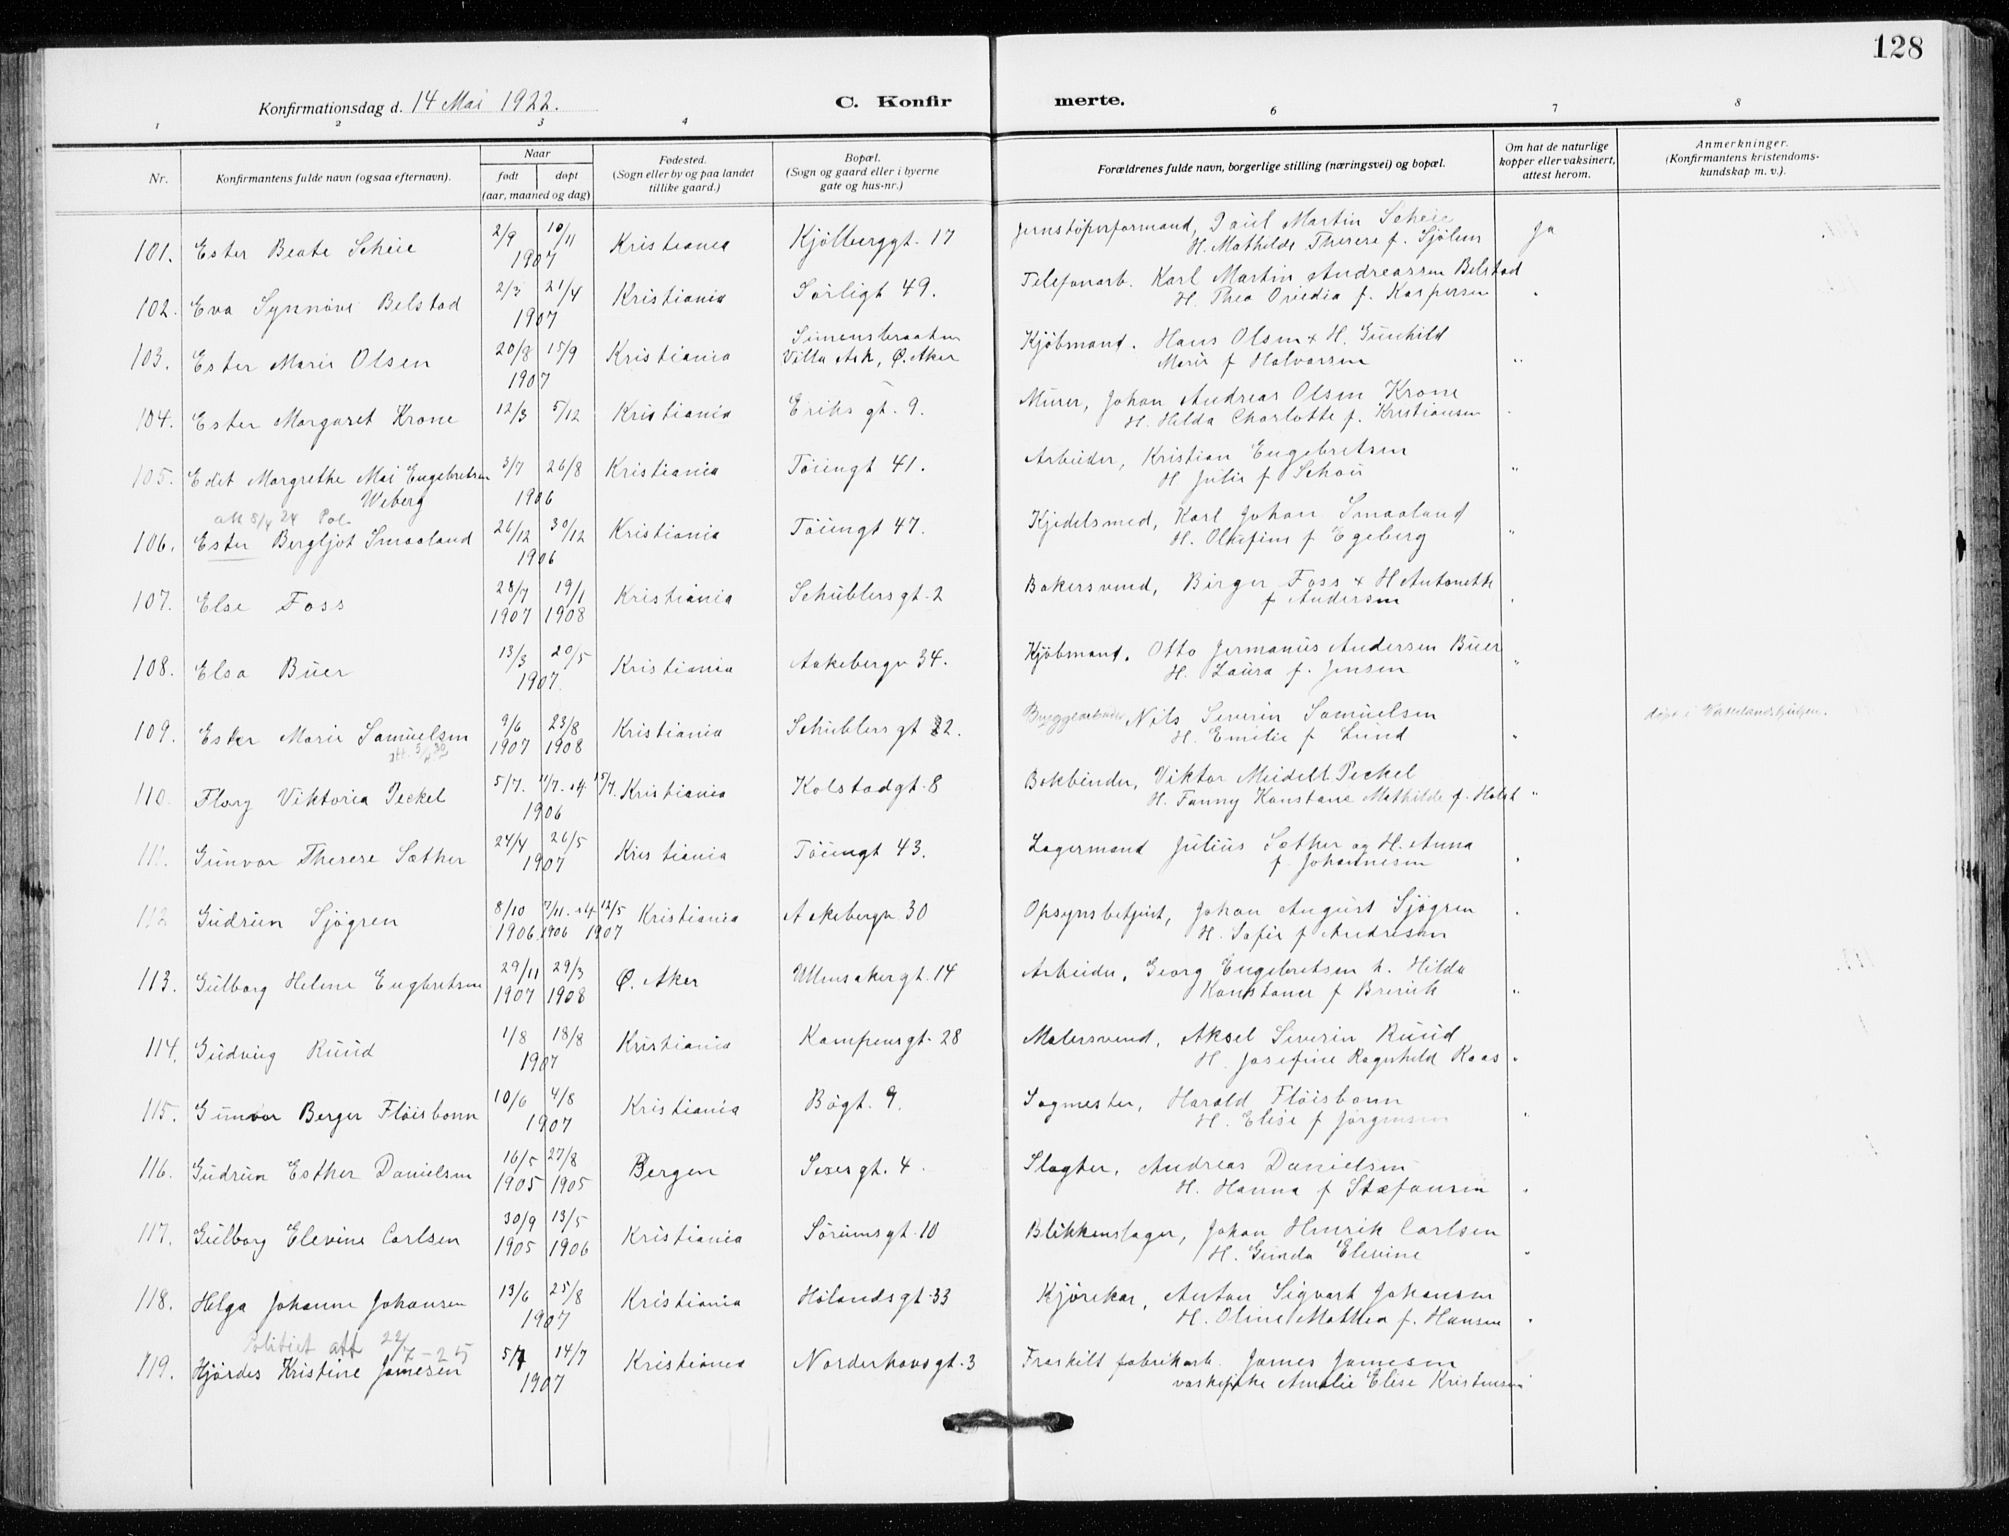 128
Konfirmationsdag d. 14 Mai 1922.
C. Konfir merte.
1 2 3 4 6 7 8
Nr.
Konfirmantens fulde navn (ogsaa efternavn).
Naar
født døpt
(aar, maaned og dag)
Fødested.
(Sogn eller by og paa landet
tillike gaard.)
Bopæl.
(Sogn og gaard eller i byerne
gate og hus-nr.)
Forældrenes fulde navn, borgerlige stilling (næringsvei) og bopæl.
Om hat de naturlige
kopper eller vaksinert,
attest herom.
Anmerkninger.
(Konfirmantens kristendoms-
kundskap m. v.).
101. Ester Beate Scheie 2/9 10/11 1907 Kristiania Kjølberggt. 17 Jernstøperformand, Paul Martin Scheie Ja
H. Mathilde Therese f. Sjølem
102. Eva Synnøve Belstad 2/3 21/4 1907 Kristiania Sørligt 49. Telefonarb. Karl Martin Andreassen Belstad
H. Thea Ovidia f. Kaspersen "
103. Ester Marie Olsen 20/8 15/9 1907 Kristiania Simensbraaten
Villa Ask, Ø. Aker Kjøbmand. Hans Olsen + H. Gunhild
Marie f Halvorsen "
104. Ester Margaret Krone 12/3 5/12 Kristiania Eriks gt. 9. Murer, Johan Andreas Olsen Krone
H. Hilda Charlotte f. Kristiansen "
105. Edit Margrethe Mai Engebretsen 3/7 26/8 1906 Kristiania Tøiengt 41. Arbeider, Kristian Engebretsen
Weberg H Julie f Schou "
att 8/4 24 Pol.
106. Ester Bergljot Smaaland 26/12 30/12 1906 Kristiania Tøiengt 47. Kjedelsmed, Karl Johan Smaaland
H. Olufine f Egeberg "
107. Else Foss 28/7 1907 19/1 1908 Kristiania Schüblers gt. 2 Bakersvend, Birger Foss + H Antonette
f Andersen "
108. Elsa Buer 13/3 20/5 1907. Kristiania Aakebergv 34. Kjøbmand. Otto Germanius Andersen Buer
H. Laura f. Jensen "
109. Ester Marie Samuelsen 9/6 1907 23/8 1908 Kristiania Schüblers gt 22. Bryggearbeider Nils Severin Samuelsen
att. 5/4 30 H. Emilie f Lund " døpt i Vaterlandskirken.
110. Flory Viktoria Peckel 5/7. 11/7. st 4 15/7. 1906 Kristiania Kolstadgt. 8 Bokbinder, Viktor Meidell Peckel
H. Fanny Konstane Mathilde f. Holst "
111. Gunvor Therese Sæther 24/4 26/5 1907 Kristiania Tøiengt 43. Lagermand Julius Sæther og H. Anna
f. Johannesen "
112 Gudrun Sjøgren 8/10 1906. 7/11. st 4 1906 12/5 1907 Kristiania Aakebergv. 30 Opsynsbetjent, Johan August Sjøgren
H. Sofie f Andresen
113. Gulborg Helene Engbretsen 29/11 1907 29/3 1908 Ø. Aker Ullensakergt. 14 Arbeider, Georg Engebretsen h. Hilda
Konstance f "
114. Gudveig Ruud 1/8 18/8 1907 Kristiania Kampensgt. 28 Malersvend, Aksel Severin Ruud
H. Josefine Ragnhild Roos "
115. Gunvor Berger Fløisbonn 10/6 4/8 1907 Kristiania Bøgt. 9. Sagmester, Harald Fløisbonn
H. Elise f Jørgensen "
116. Gudrun Esther Danielsen 16/5 1905 27/8 1905 Bergen Sexesgt. 4 Slagter, Andreas Danielsen
H. Hanna f Stæfansen "
117. Gulborg Elevine Carlsen 30/9 1905 13/5 1906 Kristiania Sørumsgt. 10 Blikkenslager, Johan Henrik Carlsen
H. Gunda Elevine "
118. Helga Johanne Johansen 13/6 25/8 1907 Kristiania Hølandsgt. 33 Kjørekar, Anton Sigvart Johansen
H. Oline Mathea f. Hansen "
Politiet att 22/7-25
119. Hjørdes Kristine Jamesen 5/4 14/7 1907 Kristiania Norderhovsgt. 3 Fraskilt fabrikarb. James Jamesen
Amalie Elise Kristensen "